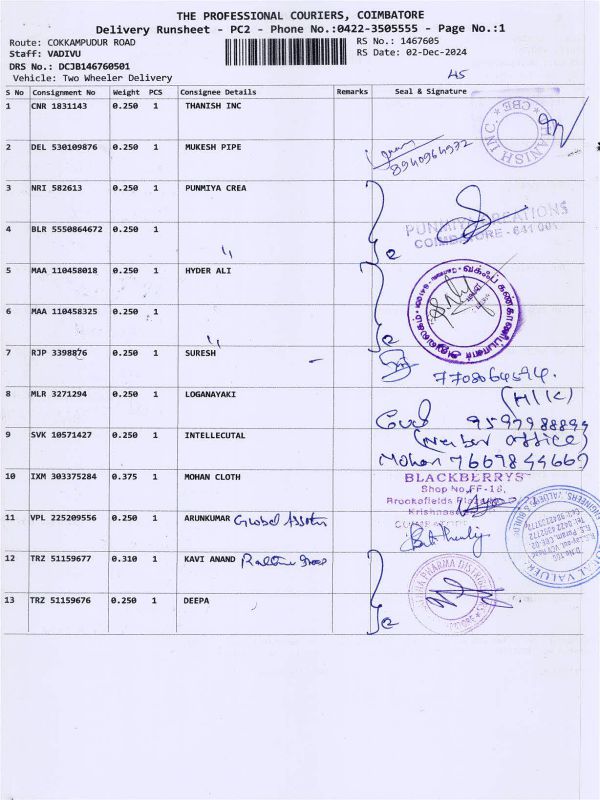 THE PROFESSIONAL COURIERS, COIMBATORE
Delivery Runsheet - PC2 - Phone No.:0422-3505555 - Page No.:1
Route: COKKAMPUDUR ROAD
RS No.: 1467605
Staff: VADIVU
RS Date: 02-Dec-2024
DRS No.: DCJB146760501
Vehicle: Two Wheeler Delivery
45
S No Consignment No Weight PCS Consignee Details Remarks Seal & Signature
1 CNR 1831143 0.250 1 THANISH INC
THANISH INC. CBE
2 DEL 530109876 0.250 1 MUKESH PIPE
8940964932
3 NRI 582613 0.250 1 PUNMIYA CREA
PUNMIYA CREATIONS
COIMBATORE - 641 001
4 BLR 5550864672 0.250 1 "
5 MAA 110458018 0.250 1 HYDER ALI
6 MAA 110458325 0.250 1 "
7 RJP 3398876 0.250 1 SURESH
7708064594.
8 MLR 3271294 0.250 1 LOGANAYAKI
(H/K)
9597988894
9 SVK 10571427 0.250 1 INTELLECUTAL
office)
Mohan 7669844669
10 IXM 303375284 0.375 1 MOHAN CLOTH
BLACKBERRYS
Shop No.FF-16,
Brookefields
11 VPL 225209556 0.250 1 ARUNKUMAR Global
12 TRZ 51159677 0.310 1 KAVI ANAND
PHARMA
13 TRZ 51159676 0.250 1 DEEPA